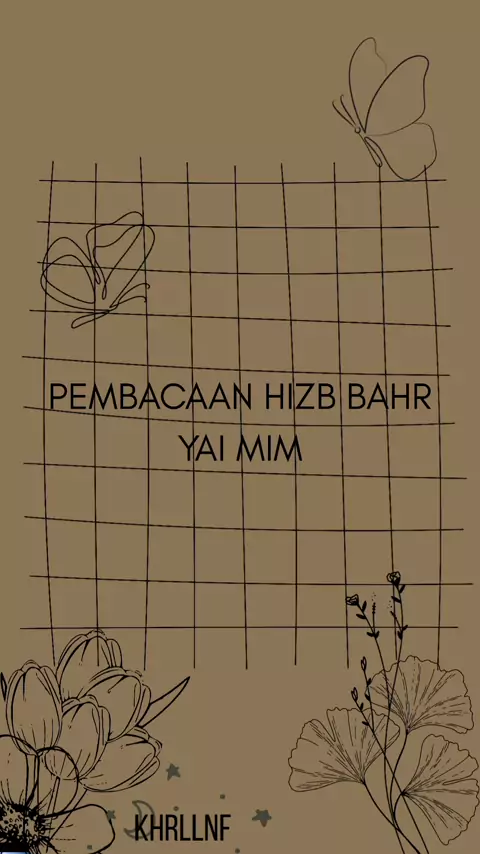 PEMBACAAN HIZB BAHR
YAI MIM
KHRLLNF